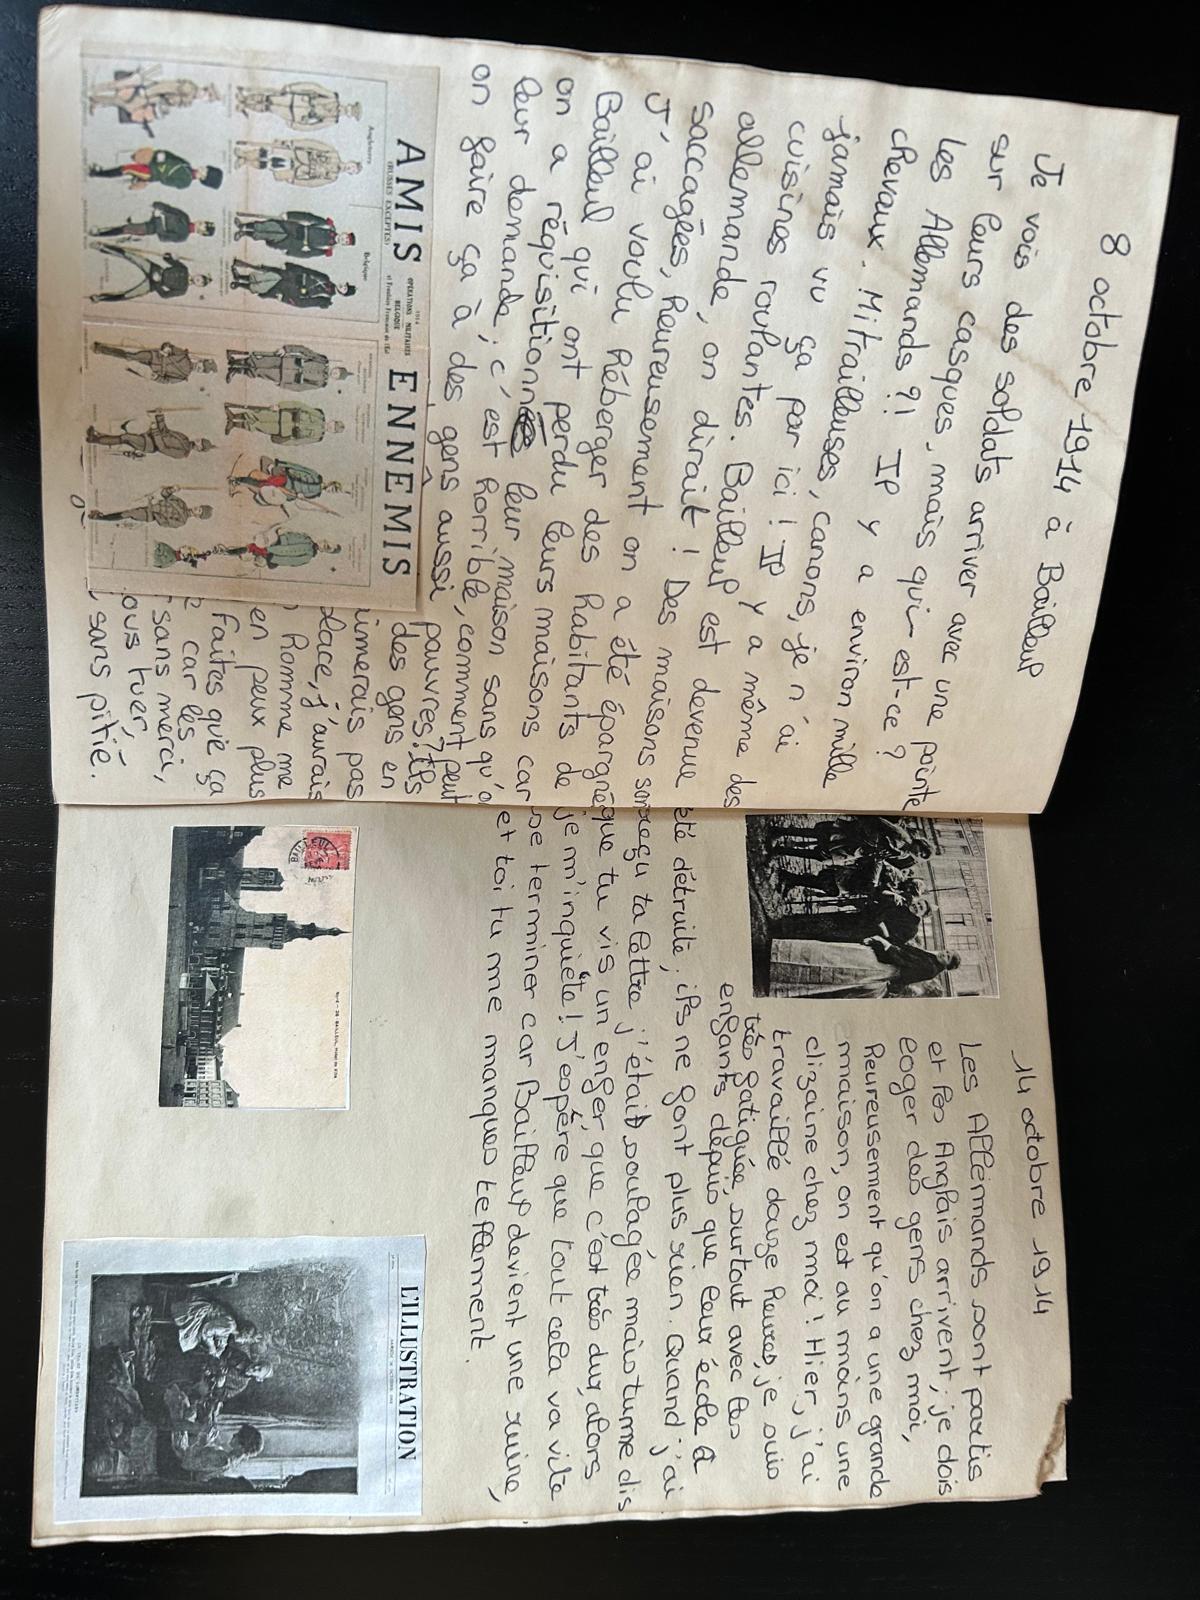 8 octobre 1914 à Bailleul
Je vois des soldats arriver avec une pointe
sur leurs casques, mais qui est-ce ?
Les Allemands ?! Il y a environ mille
chevaux. Mitrailleuses, canons, je n'ai
jamais vu ça par ici ! Il y a même des
cuisines roulantes. Bailleul est devenue
allemande, on dirait ! Des maisons
saccagées, heureusement on a été épargné
J'ai voulu héberger des habitants de
Bailleul qui ont perdu leurs maisons car
on a réquisitionné leur maison sans qu'
leur demande, c'est horrible, comment peut
on faire ça à des gens aussi pauvres ? Ils
des gens en
imerais pas
place, j'aurais
homme me
en peux plus
faites que ça
car les
sans merci,
ous tuer,
sans pitié.
AMIS ENNEMIS
(RUSSES EXCEPTÉS)
1914
OPÉRATIONS MILITAIRES
BELGIQUE
et Frontière Française de l'Est
Angleterre
Belgique
14 octobre 1914
Les Allemands sont partis
et les Anglais arrivent, je dois
loger des gens chez moi,
heureusement qu'on a une grande
maison, on est au moins une
dizaine chez moi ! Hier, j'ai
travaillé douze heures, je suis
très fatiguée, surtout avec les
enfants depuis que leur école a
été détruite, ils ne font plus rien. Quand j'ai
reçu ta lettre j'étais soulagée mais tu me dis
que tu vis un enfer, que c'est très dur, alors
je m'inquiète ! J'espère que tout cela va vite
se terminer car Bailleul devient une ruine,
et toi tu me manques tellement.
BAILLEUL
Nord - 26 - BAILLEUL, Hôtel de Ville
L'ILLUSTRATION